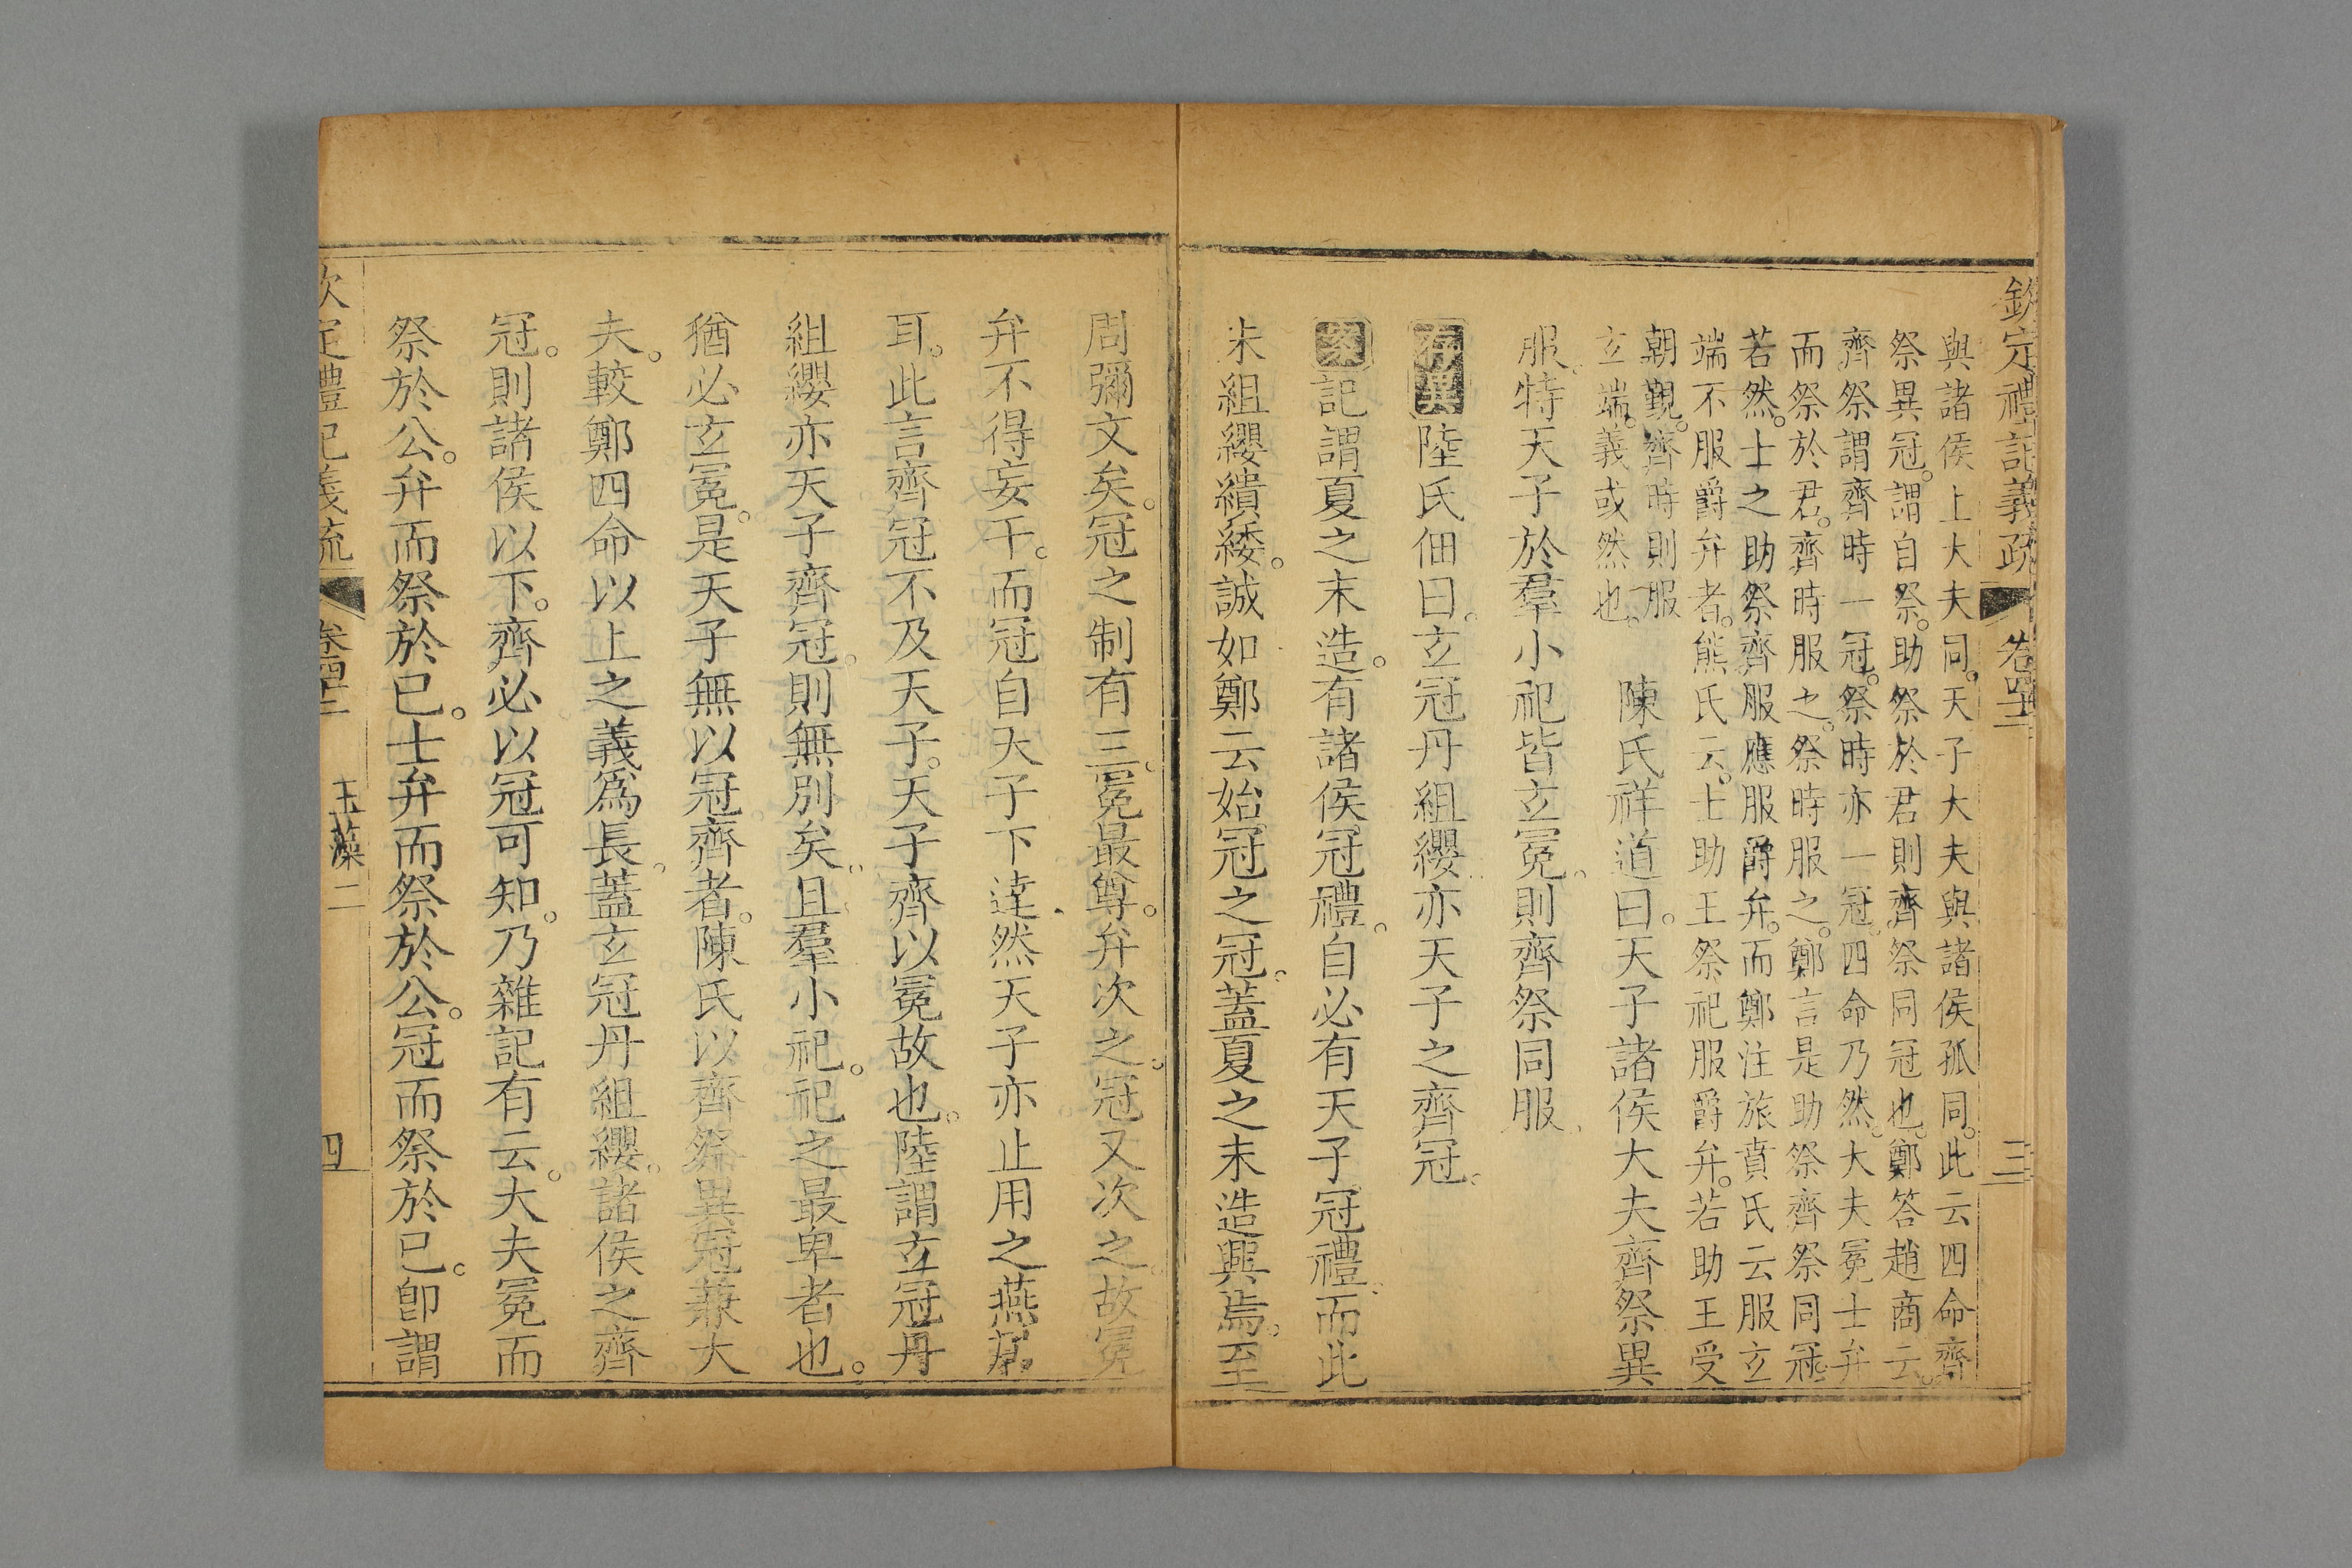 欽定禮記義疏 卷四十二 三
與諸侯上大夫同。天子大夫與諸侯孤同。此云四命齊
祭異冠。謂自祭。助祭於君則齊祭同冠也。鄭答趙商云。
齊祭謂齊時一冠。祭時亦一冠。四命乃然。大夫冕士弁
而祭於君。齊時服之。祭時服之。鄭言是助祭齊祭同冠。
若然。士之助祭齊服應服爵弁。而鄭注旅賁氏云服玄
端不服爵弁者。熊氏云。士助王祭祀服爵弁。若助王受
朝覲。齊時則服
玄端。義或然也。
陳氏祥道曰。天子諸侯大夫齊祭異
服。特天子於羣小祀皆玄冕。則齊祭同服
存異陸氏佃曰。玄冠丹組纓亦天子之齊冠。
案記謂夏之末造。有諸侯冠禮。自必有天子冠禮。而此
朱組纓繢緌。誠如鄭云始冠之冠。蓋夏之末造興焉。至
周彌文矣。冠之制有三。冕最尊。弁次之。冠又次之。故冕
弁不得妄干。而冠自天子下達然天子亦止用之燕居
耳。此言齊冠不及天子。天子齊以冕故也。陸謂玄冠丹
組纓亦天子齊冠。則無別矣。且羣小祀。祀之最卑者也。
猶必玄冕。是天子無以冠齊者。陳氏以齊祭異冠兼大
夫。較鄭四命以上之義爲長。蓋玄冠丹組纓。諸侯之齊
冠。則諸侯以下。齊必以冠可知。乃雜記有云。大夫冕而
祭於公。弁而祭於已。士弁而祭於公。冠而祭於已。卽謂
欽定禮記義疏 卷四十二 玉藻二 四